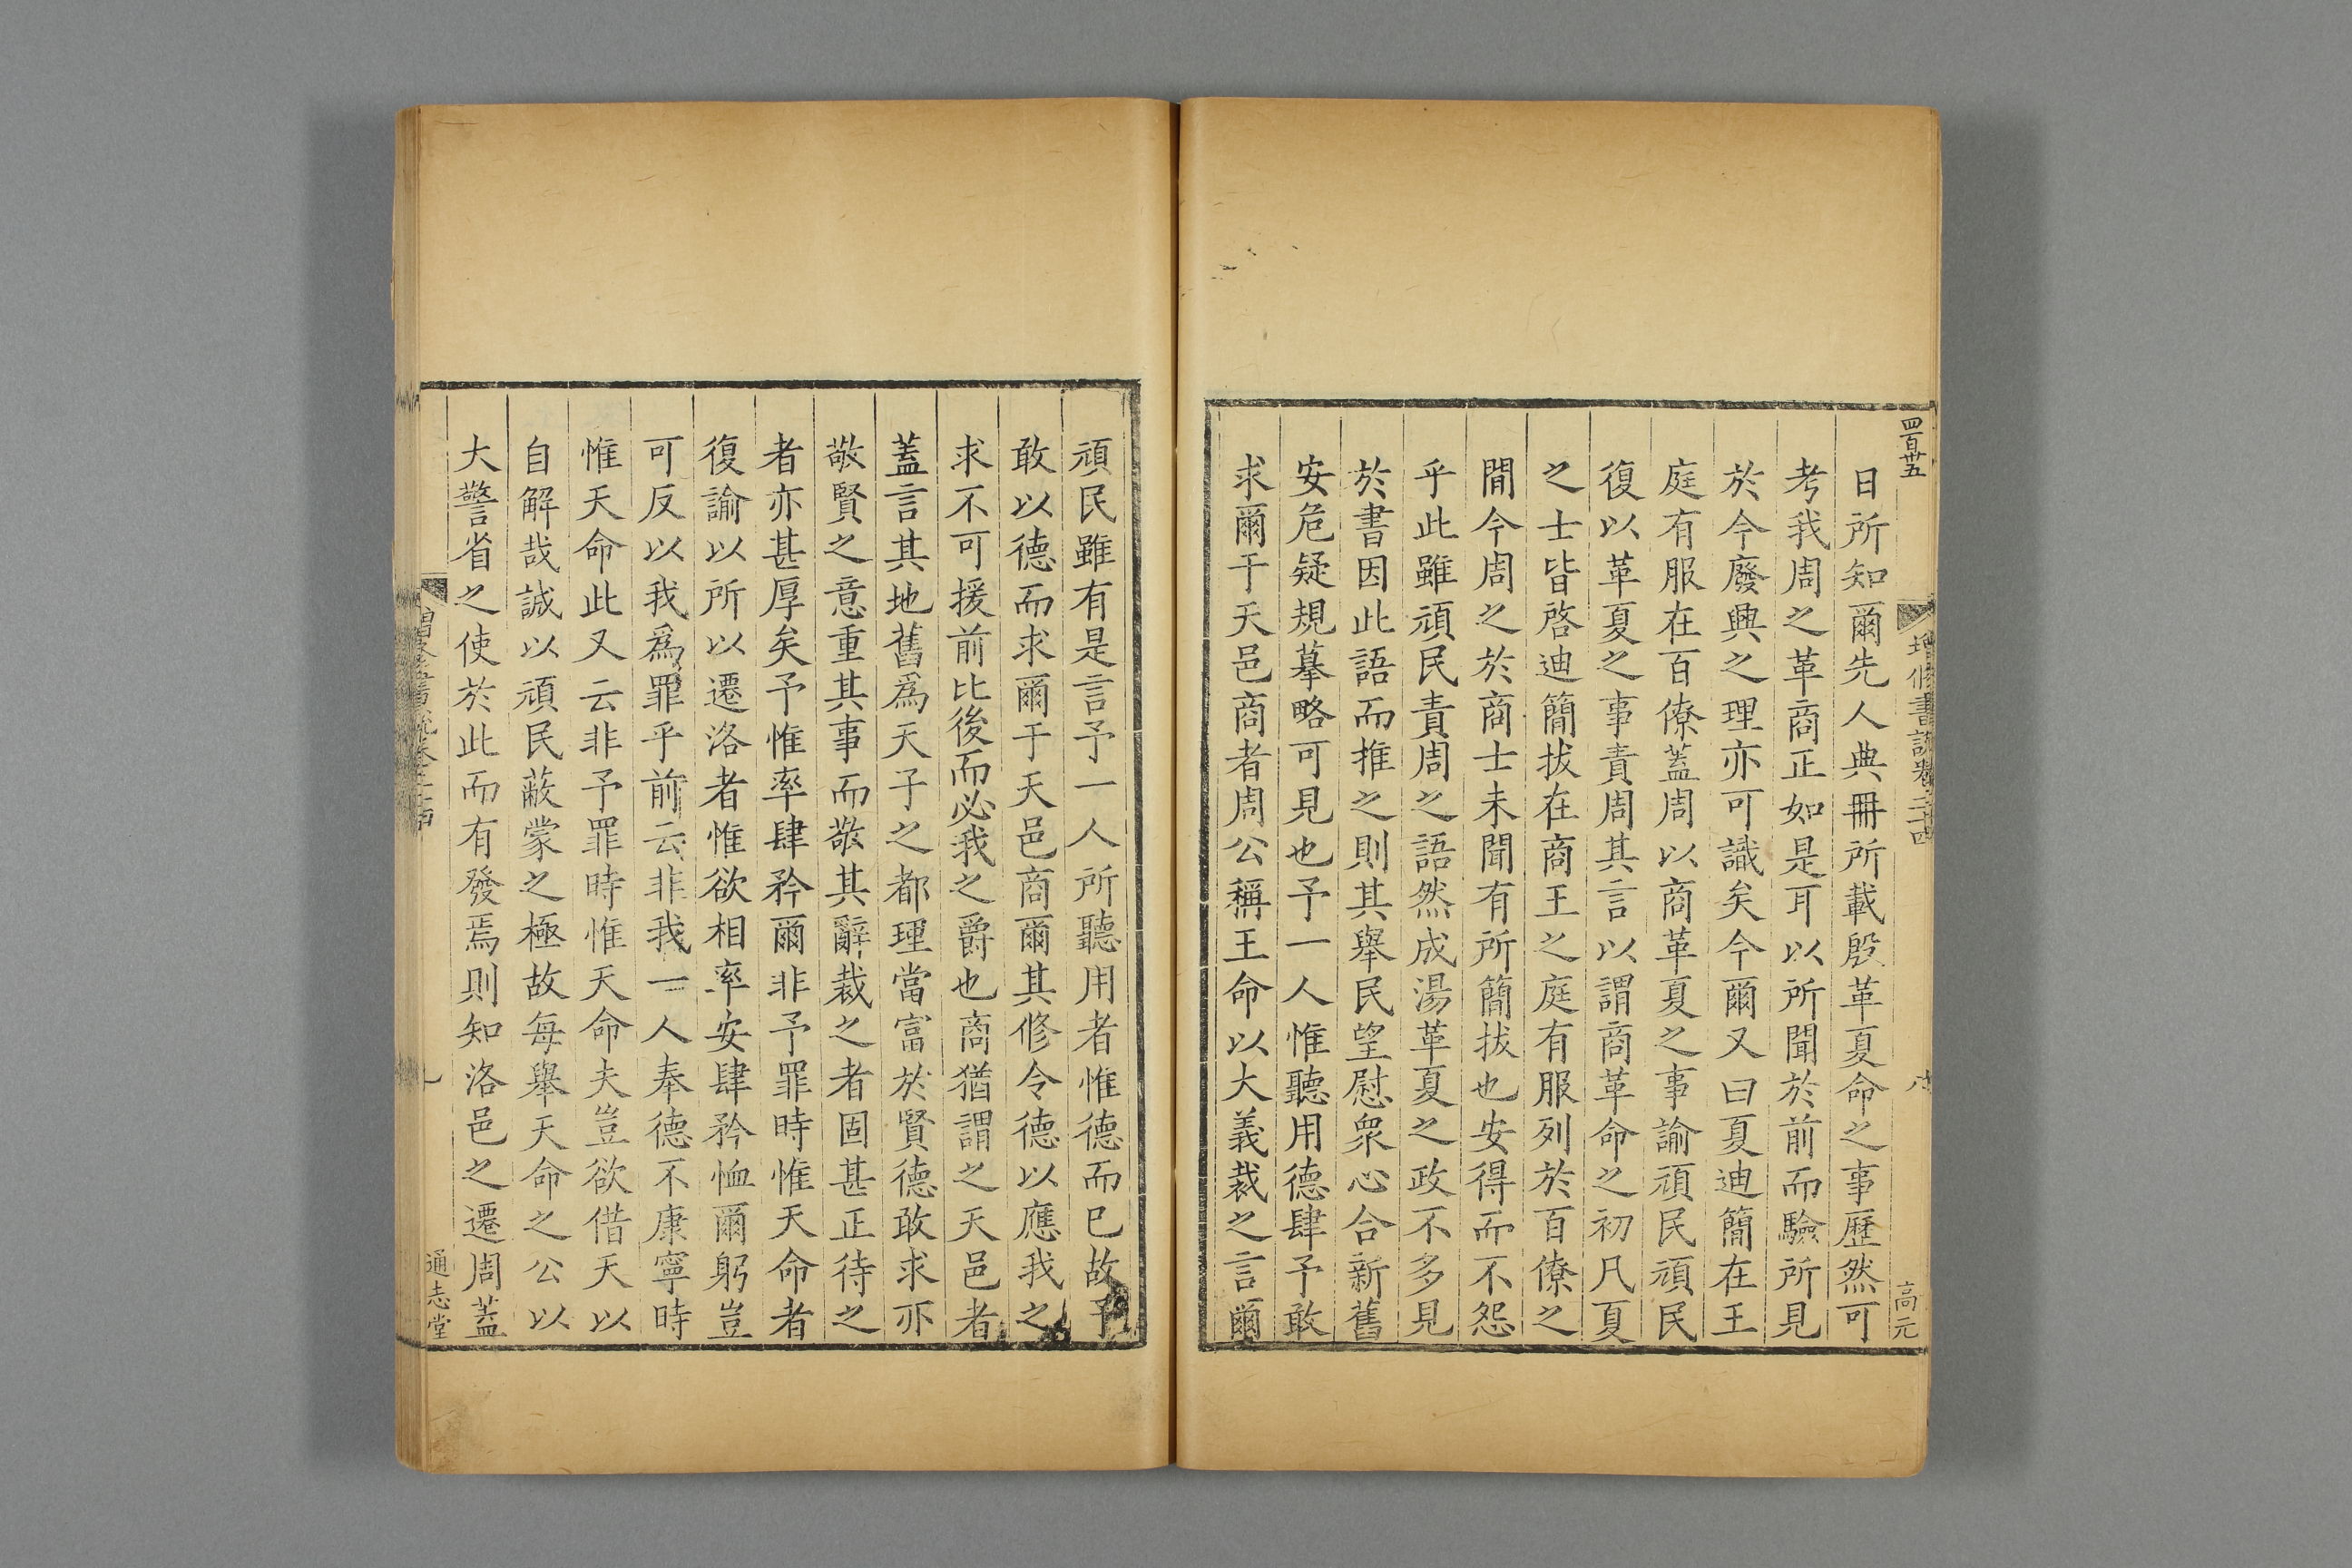 四百廿五
增修書說卷二十四
八
高元
日所知爾先人典冊所載殷革夏命之事歷然可
考我周之革商正如是耳以所聞於前而驗所見
於今廢興之理亦可識矣今爾又曰夏迪簡在王
庭有服在百僚蓋周以商革夏之事諭頑民頑民
復以革夏之事責周其言以謂商革命之初凡夏
之士皆啓迪簡拔在商王之庭有服列於百僚之
間今周之於商士未聞有所簡拔也安得而不怨
乎此雖頑民責周之語然成湯革夏之政不多見
於書因此語而推之則其舉民望慰眾心合新舊
安危疑規摹略可見也予一人惟聽用德肆予敢
求爾于天邑商者周公稱王命以大義裁之言爾
頑民雖有是言予一人所聽用者惟德而已故予
敢以德而求爾于天邑商爾其修令德以應我之
求不可援前比後而必我之爵也商猶謂之天邑者
蓋言其地舊爲天子之都理當富於賢德敢求亦
敬賢之意重其事而敬其辭裁之者固甚正待之
者亦甚厚矣予惟率肆矜爾非予罪時惟天命者
復諭以所以遷洛者惟欲相率安肆矜恤爾躬豈
可反以我爲罪乎前云非我一人奉德不康寧時
惟天命此又云非予罪時惟天命夫豈欲借天以
自解哉誠以頑民蔽蒙之極故每舉天命之公以
大警省之使於此而有發焉則知洛邑之遷周蓋
通志堂